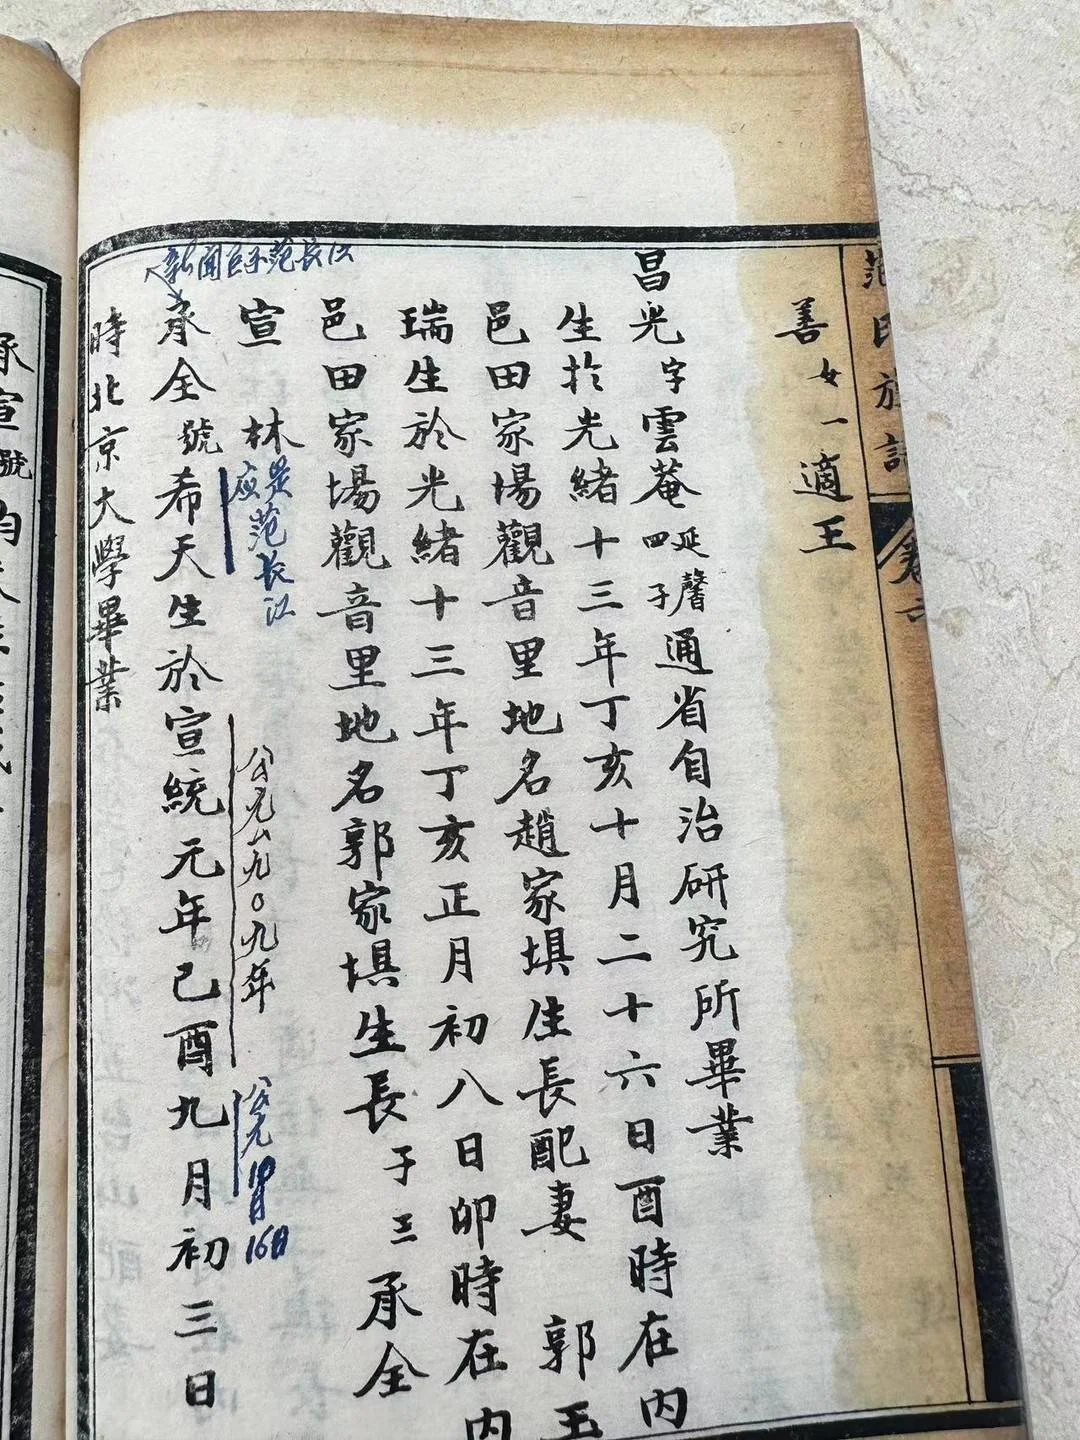 范氏族譜
卷六
善 女一適王
昌光字雲菴延馨四子通省自治研究所畢業
生於光緒十三年丁亥十月二十六日酉時在內
邑田家場觀音里地名趙家垻生長配妻 郭玉
瑞生於光緒十三年丁亥正月初八日卯時在內
邑田家場觀音里地名郭家垻生長子三承全
宣 林
应是范长江
新闻巨子范长江
承全號希天生於宣統元年己酉九月初三日
公元一九〇九年
公元10月16日
時北京大學畢業
承宣號